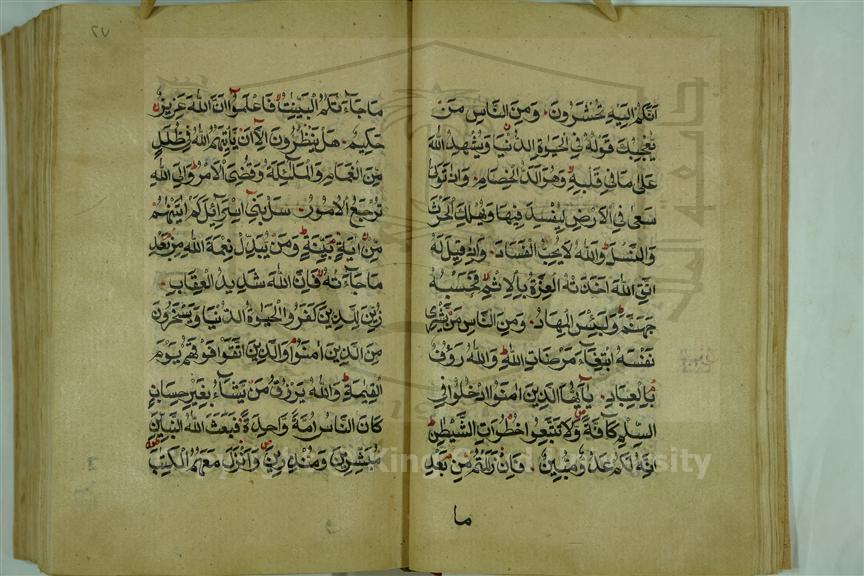 انكم اليه تحشرون ومن الناس من
يعجبك قوله في الحيوة الدنيا ويشهد الله
على ما في قلبه وهو الد الخصام واذا تولى
سعى في الارض ليفسد فيها ويهلك الحرث
والنسل والله لا يحب الفساد واذا قيل له
اتق الله اخذته العزة بالاثم فحسبه
جهنم ولبئس المهاد ومن الناس من يشري
نفسه ابتغاء مرضات الله والله رؤف
بالعباد يا ايها الذين امنوا ادخلوا في
السلم كافة ولا تتبعوا خطوات الشيطن
انه لكم عدو مبين فان زللتم من بعد
ما
٢٧
ما جاءتكم البينت فاعلموا ان الله عزيز
حكيم هل ينظرون الا ان ياتيهم الله في ظلل
من الغمام والملئكة وقضى الامر والى الله
ترجع الامور سل بني اسرائيل كم اتينهم
من اية بينة ومن يبدل نعمة الله من بعد
ما جاءته فان الله شديد العقاب
زين للذين كفروا الحيوة الدنيا ويسخرون
من الذين امنوا والذين اتقوا فوقهم يوم
القيمة والله يرزق من يشاء بغير حساب
كان الناس امة واحدة فبعث الله النبين
مبشرين ومنذرين وانزل معهم الكتب
King Saud University